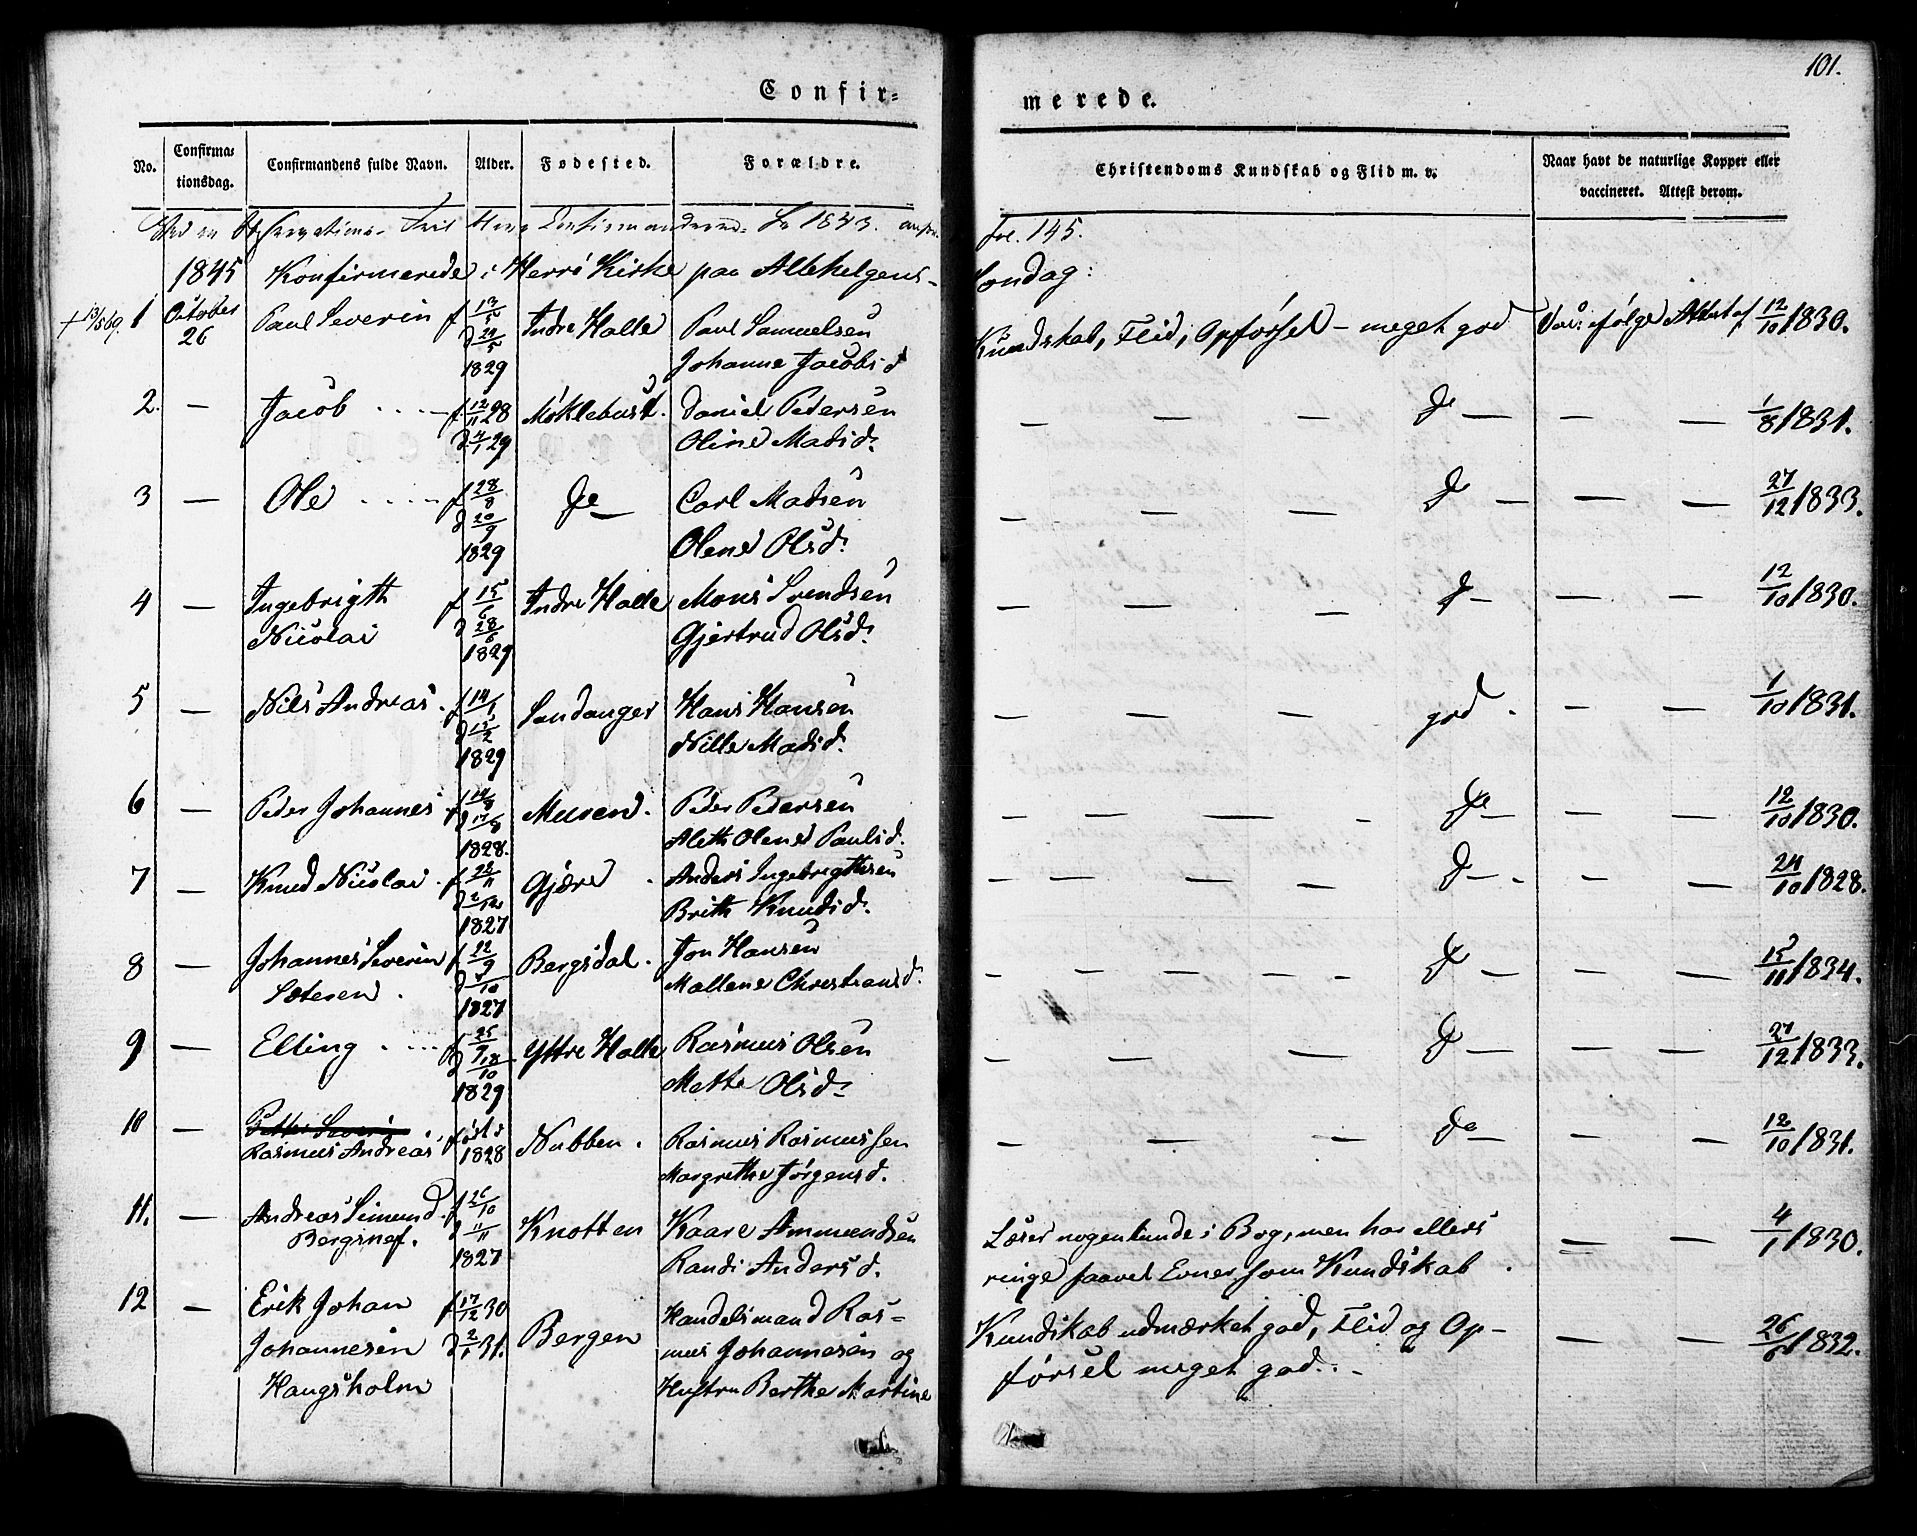 101.
Confir-
merede.
No.
Confirma-
tionsdag.
Confirmandens fulde Navn.
Alder.
Fødested.
Forældre.
Christendoms Kundskab og Flid m. v.
Naar havt de naturlige Kopper eller
vaccineret. Attest derom.
Confirmanderne 1843.
fol. 145.
1845 Konfirmerede i Herrö Kirke paa Allehelgens-
Søndag:
1 October 26 Paul Severin f 13/5 Indre Halle Paul Samuelsen Kundskab, Flid, Opførsel - meget god Vac: ifølge Attest af 12/10 1830.
d 24/5
1829 Johanne Jacobsd
2. — Jacob f 12/11 28 Møklebust. Daniel Pedersen — — — Do — — — 1/8 1831.
d 4/1 29 Oline Madsd.
3 — Ole f 28/8 Do — Carl Madsen — — — Do — — — 27/12 1833.
d 20/9
1829 Olene Olsd.
4 — Ingebrigth f 15/6 Indre Halle Mons Svendsen — — — Do — — — 12/10 1830.
Nicolai d 28/6 Gjertrud Olsd.
1829
5 — Nils Andreas. f 14/1 Sandanger Hans Hansen — — — god. — — 1/10 1831.
d 15/2 Nille Madsd.
1829
6 — Peder Johannes f 14/8 Muren. Peder Pedersen — — — - Do — — — 12/10 1830.
d 17/8
1828. Aleth Olene Paulsd.
7 — Knud Nicolai. f 22/11 Gjære. Anders Ingebrigthsen — — — — Do — . — — 24/10 1828.
d 2/12 Brith Knudsd.
1827
8 — Johannes Severin f 22/9 Bergsdal. Jon Hansen — — — — - Do — — — 15/11 1834.
Sætren. d /10 Mallene Christiansd.
1827
9 — Elling f 25/9 Yttre Halle Rasmus Olsen — — — Do — — — 27/12 1833.
d 18/10 Mette Olsd.
1829
10 — Petter Severin
Rasmus Andreas født 1828 Nubben. Rasmus Rasmussen — — — Do — — — 12/10 1831.
Margrethe Jørgensd.
11. — Andreas Simund. f 26/10 Knotten Kaare Ammundsen Læser nogenlunde i Bog, men har ellers — — 4/1 1830.
Bergsnef. d 11/11
1827 Randi Andersd. ringe saavel Evner som Kundskab.
12 — Erik Johan f 17/12 30 Bergen Handelsmand Ras- Kundskab udmærket god, Flid og Op- — — 26/6 1832.
Johannesen d 2/1 31. mus Johannesen og førsel meget god.
Haugsholm Hustru Berthe Martine